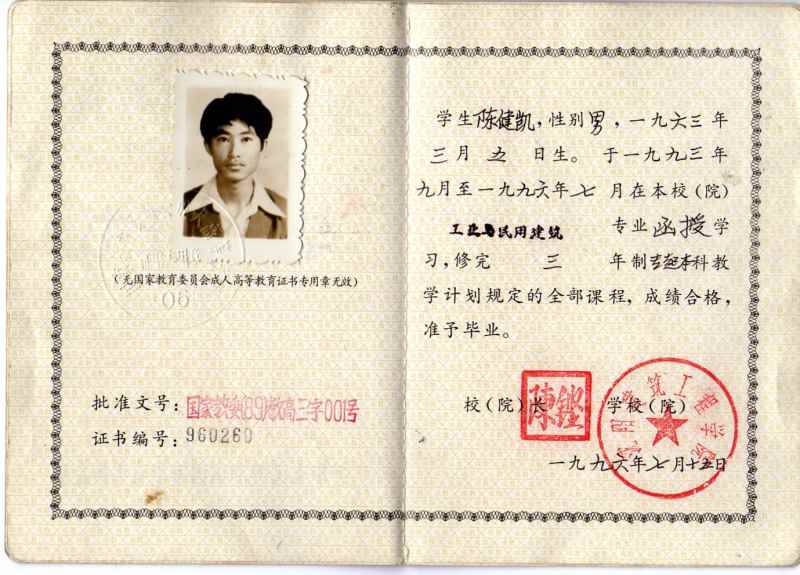 (无国家教育委员会成人高等教育证书专用章无效)
06
批准文号：国家教委(89)教高三字001号
证书编号：960260
学生陈健凯，性别男，一九六三年
三月五日生。于一九九三年
九月至一九九六年七月在本校（院）
工业与民用建筑专业函授学
习，修完三年制专起本科教
学计划规定的全部课程，成绩合格，
准予毕业。
校（院）长 学校（院）
陈
建筑工程学院
一九九六年七月十五日